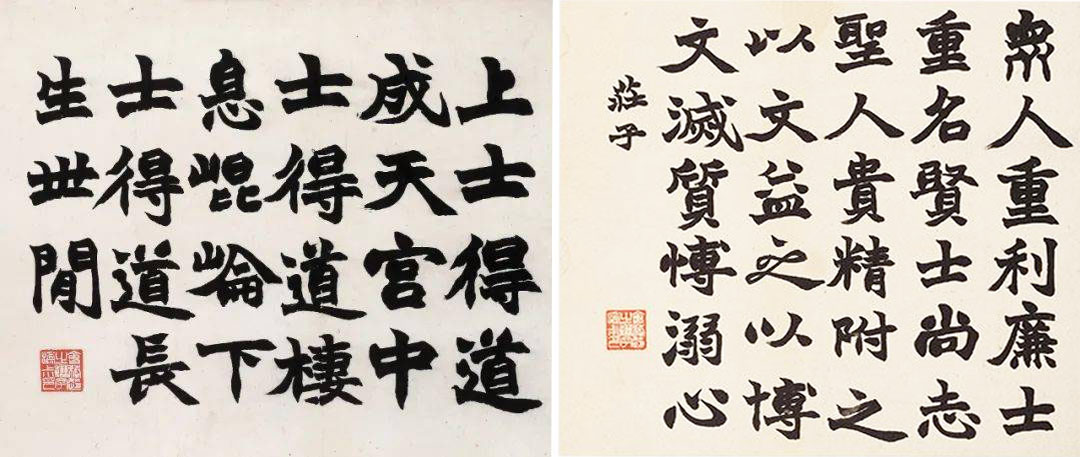 上士得道
成天宮中
士得道棲
息崐崘下
士得道長
生世閒
眾人重利廉士
重名賢士尚志
聖人貴精附之
以文益之以博
文滅質愽溺心
莊子